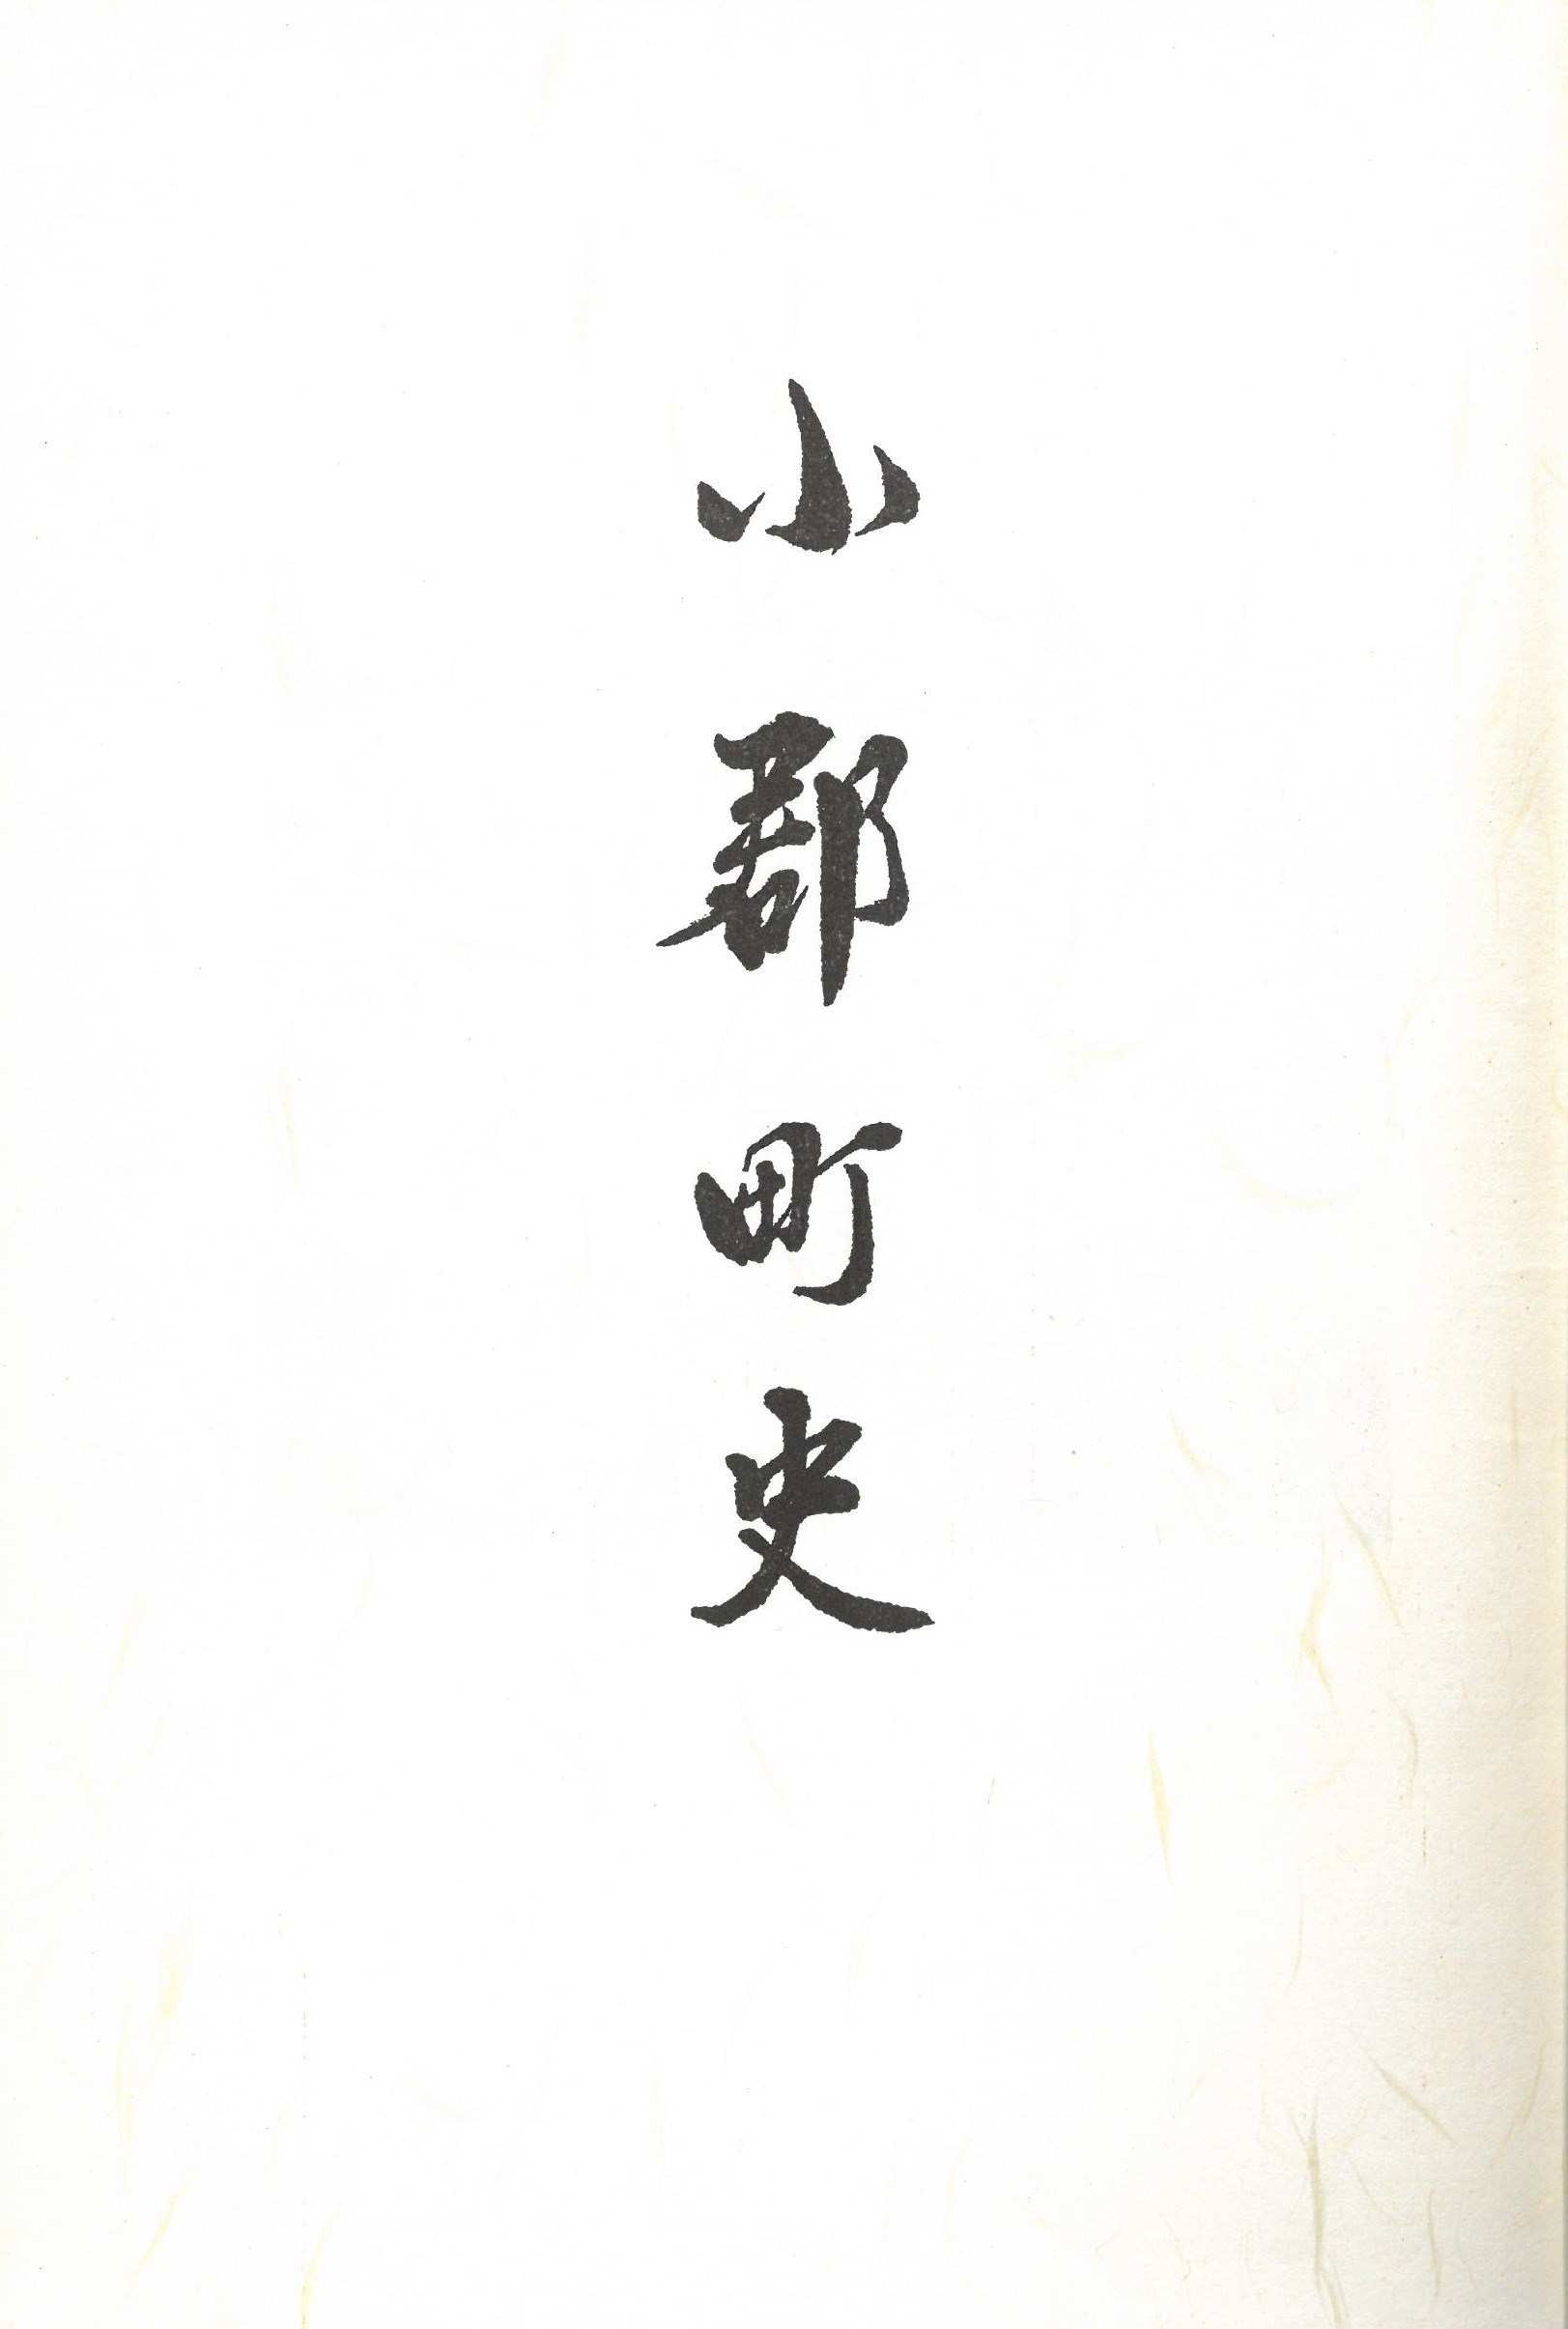 小郡町史